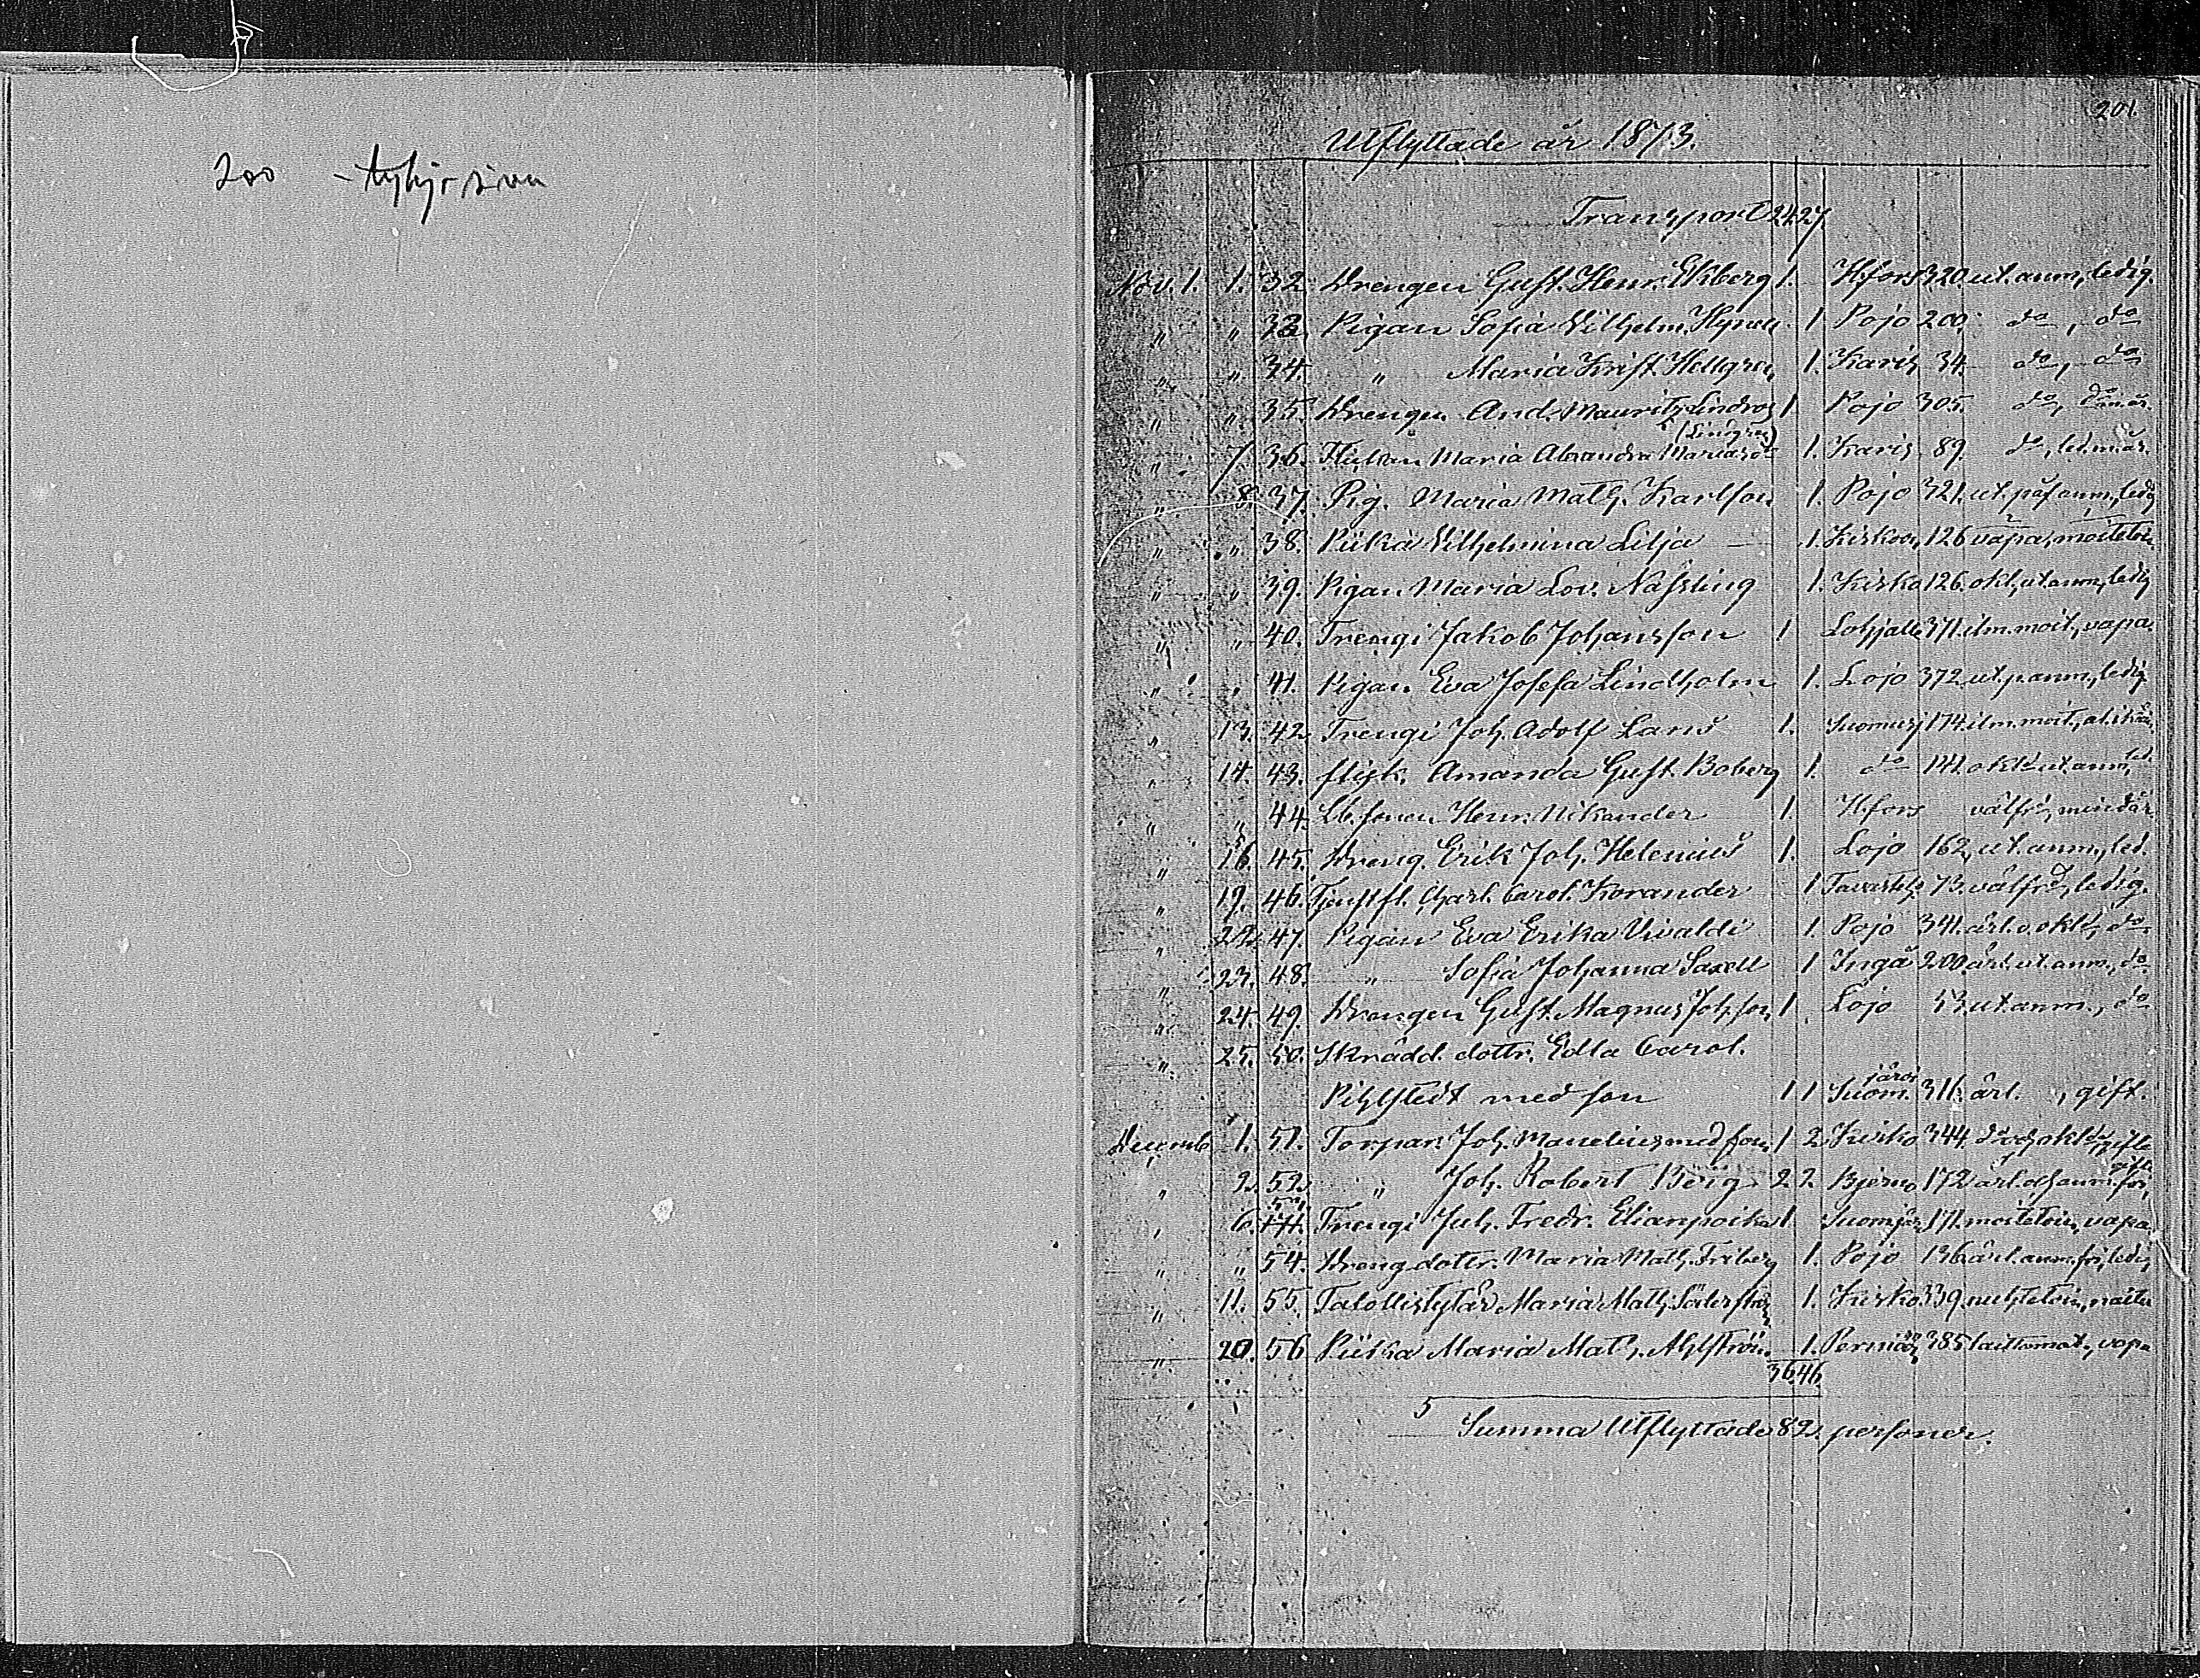 200 - tyhjä sivu
201.
Utflyttade år 1873.
Transport 24 27.
Nov. 1. 1. 32. Drengen Gust. Henr. Ekberg 1. H.fors 320. ut. anm., ledig.
" " 33. Pigan Sofia Vilhelm. 1. Pojo 200. do, do
" " 34. " Maria Krist. Hellgren 1. Karis 34. do, do
" " 35. Drengen And. Mauritz Lindros 1 Pojo 305. do,
(Lindgren)
" 7. 36. Maria Alexandra 1. Karis 89. do,
" 8. 37. Pig. Maria Math. Karlson 1. Pojo 321. ut. påf. anm., ledig
" " 38. Piika Vilhelmina Lilja — 1. Kiskoon 126 vapa, moiteton
" " 39. Pigan Maria Lov. Nassling 1. Kisko 126. okl., ut. anm., ledig
" " 40. Trengi Jakob Johansson 1 Lohjalle 371. ilm. moit., vapa.
" " 41. Pigan Eva Josefa Lindholm 1. Lojo 372. ut. p. anm., ledig
" 13. 42. Trengi Joh. Adolf Lans 1. Suomusj 174. ilm. moit.,
" 14. 43. flisk. Amanda Gust. Boberg 1. do 141. okl. ut. anm., led.
" " 44. Henr. Nikander 1. H.fors välfr.,
" 15. 45. Dreng. Erik Joh. Helenius 1. Lojo 162. ut. anm., led.
" 19. 46. Tjenstfl. Charl. Carol. Korander 1 Tavasteh. 73. välfr., ledig.
" 22. 47. Pigan Eva Erika Vivaldi 1. Pojo 341. ärl. o. okl., do
" 23. 48. " Sofia Johanna Saxell 1 Ingå 200. ärl. ut. anm., do
" 24. 49. Drengen Gust. Magnus Joh.son 1. Lojo 53. ut. anm., do
" 25. 50. Skrädd. dottr. Edla Carol.
Pihlstedt med son 1 1 Suom.järvi 316. ärl., gift.
Decemb. 1. 51. Torpar. Joh. Manelius med fam. 1 2. Kisko 344. gifte
" 2. 52. " Joh. Robert Berg 2 2. Bjerno 172 ärl. och anm.fri, gifte
" 6. 53. Trengi Juh. Fredr. Elianpoika 1 Suomjär 171. moiteton, vapa
" " 54. Dreng.dottr. Maria Math. Friberg 1. Pojo 136 ärl. anm.fri, ledig
" 11. 55. Talollistytär Maria Math. Söderström 1. Kisko. 339. nuhteton, naitu
" 20. 56 Piika Maria Math. Ahlström 1. Perniöön 385 laittamat., vapa
36 46
5
Summa Utflyttade 82 personer.